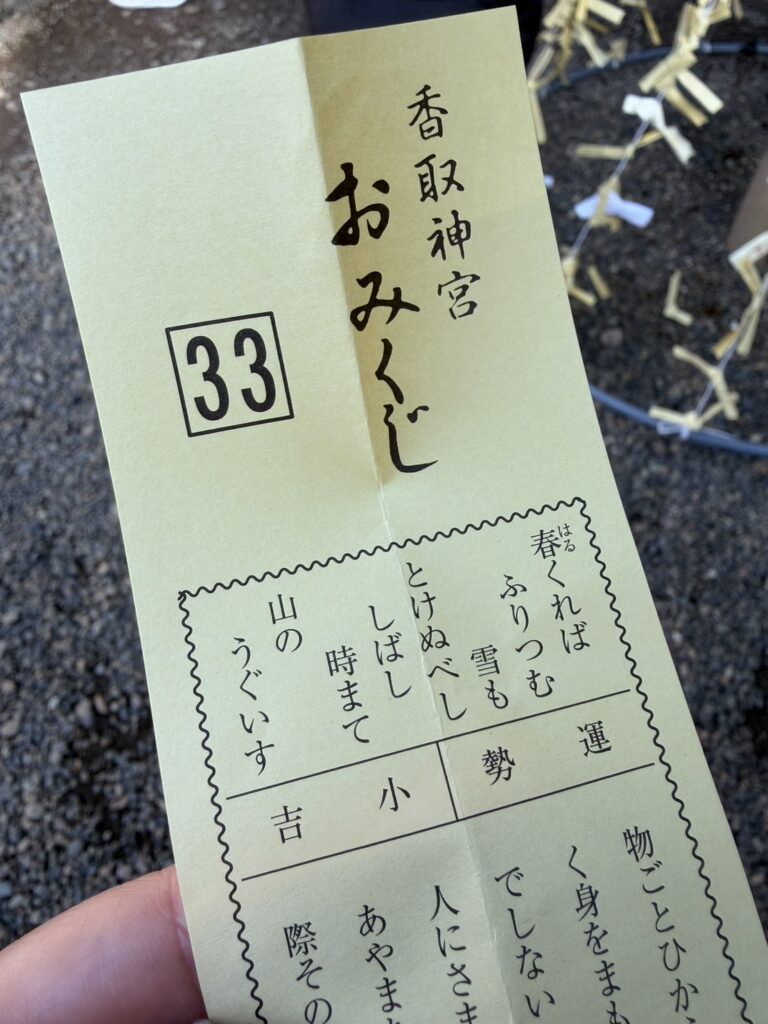 香取神宮
おみくじ
33
春くれば
はる
ふりつむ
雪も
とけぬべし
しばし
時まて
山の
うぐいす
運勢
小吉
物ごとひか
く身をまも
でしない
人にさま
あやま
際その